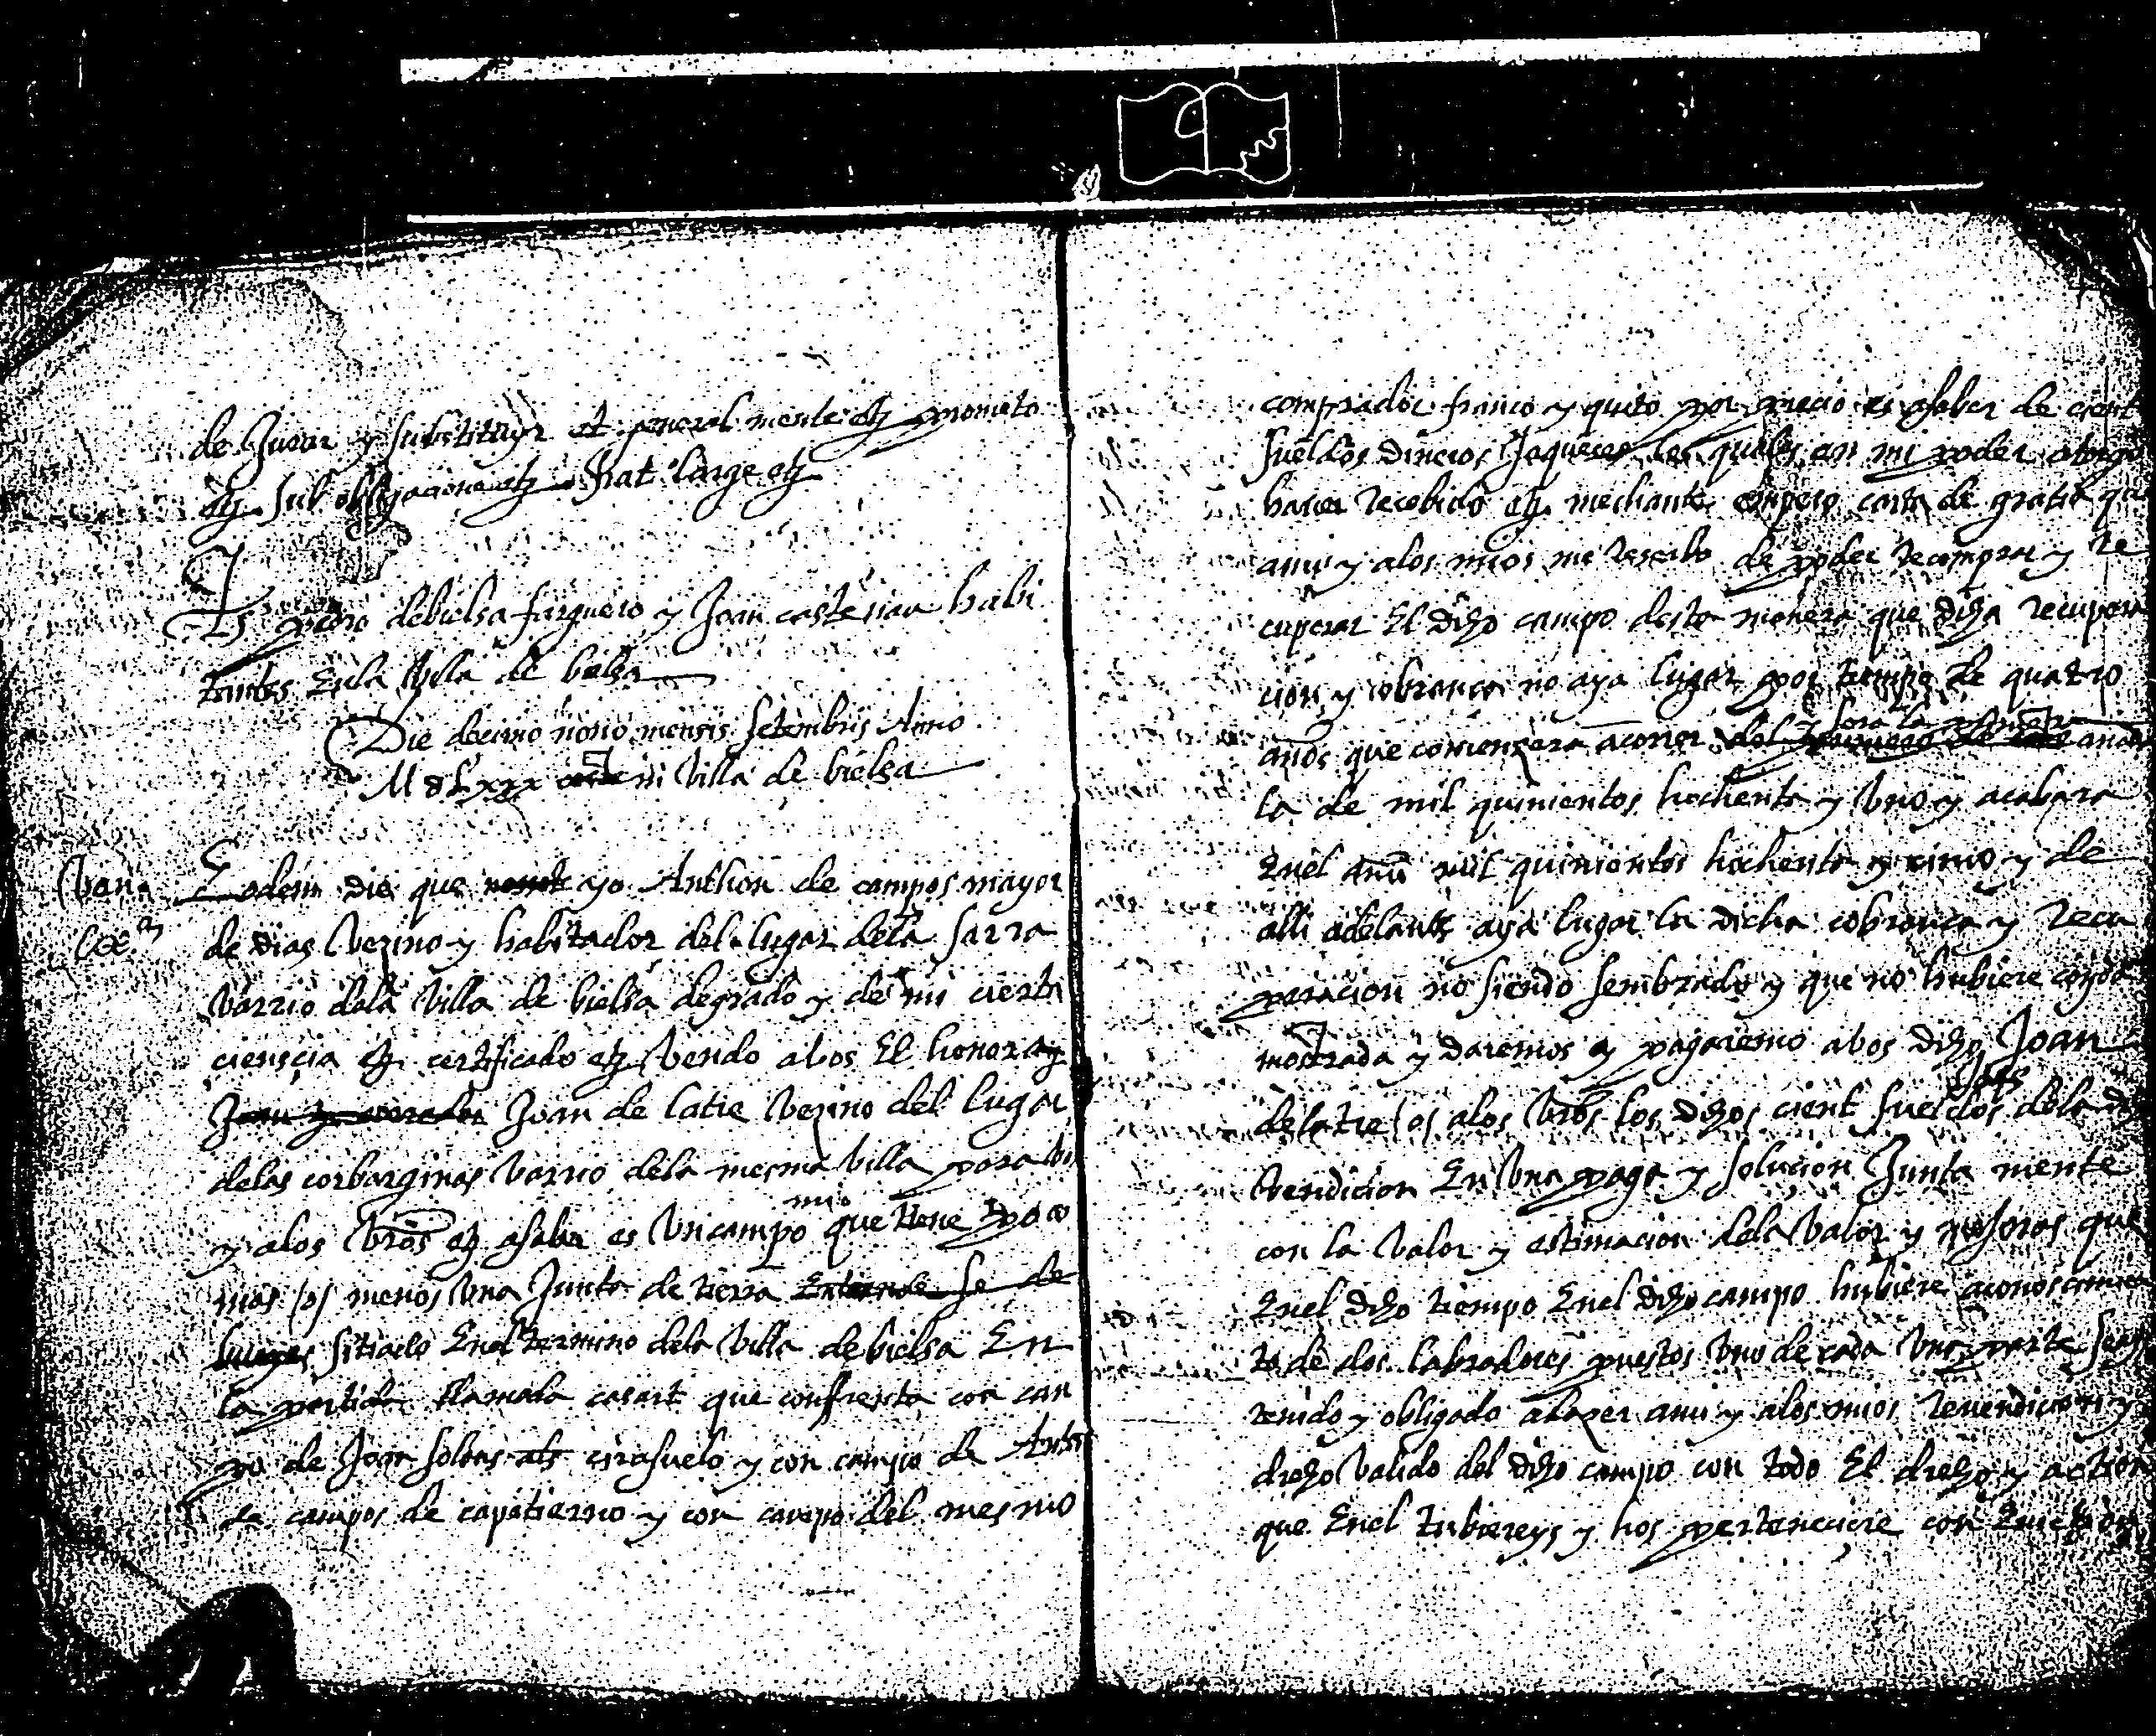 de Jurar y substituyr et general mente etz prometo
etz sub obligacione etz fiat large etz
Ts pedro debielsa farguero y Joan castenau habi
tantes Enla Villa de bielsa
Die decimo nono mensis Setembris Anno
M d Lxxx in Villa de bielsa
Eadem die que yo Anthon de campos mayor
de dias Vezino y habitador del lugar dela sarra
Varrio dela Villa de bielsa degrado y de mi cierta
cienscia etz certificado etz Vendo a bos El honorable
Joan de latie Vezino del lugar
delas corbarginas Varrio dela mesma Villa para bos
y alos Vros etz asaber es Vn campo mio que tiene poco
mas /o/ menos Vna Junta de tierra Entiende se de
sitiado Enel termino dela Villa de bielsa En
la partida llamada casart que confrenta con can
po de Joan solans als cirasuelo y con campo de Anton
de campos de capatierno y con campo del mesmo
comprador franco y quito por precio es asaber de cient
sueldos dineros Jaqueses los quales en mi poder atorgo
hauer recebido etz mediante empero carta de gratia que
ami y alos mios me reserbo de poder recomprar y re
cuperar El dicho campo desta manera que dicha recupera
cion y cobrança no aya lugar por tiempo de quatro
años que començera acorrer del y sera la primera
la de mil quinientos hochenta y Vno y acabara
Enel año mil quinientos hochenta y cinco y de
alli adelante aya lugar la dicha cobrança y recu
peracion no siendo sembrado y que no hubiere coyda
mostrada y daremos y pagaremo abos dicho Joan
delatie /o/ alos Vros los dichos cient sueldos Jaqs dela
Vendicion En Vna paga y solucion Junta mente
con la Valor y estimacion dela Valor y mejoras que
Enel dicho tiempo Enel dicho campo hubiere aconoscimien
to de dos labradores puestos Vno de cada Vna parte
tenido y obligado ahazer ami y alos mios revendicion y
drecho Valido del dicho campo con todo El drecho y action
que Enel tubiereys y hos pertenciere con Euiction